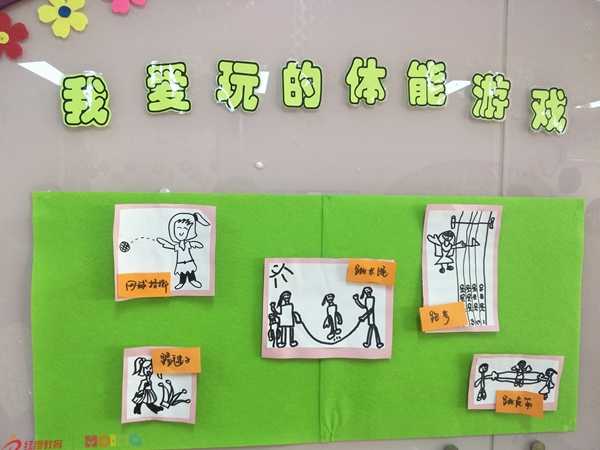 我爱玩的体能游戏
网球掷掷
跳长绳
跑步
踢毽子
跳皮筋
红缨教育